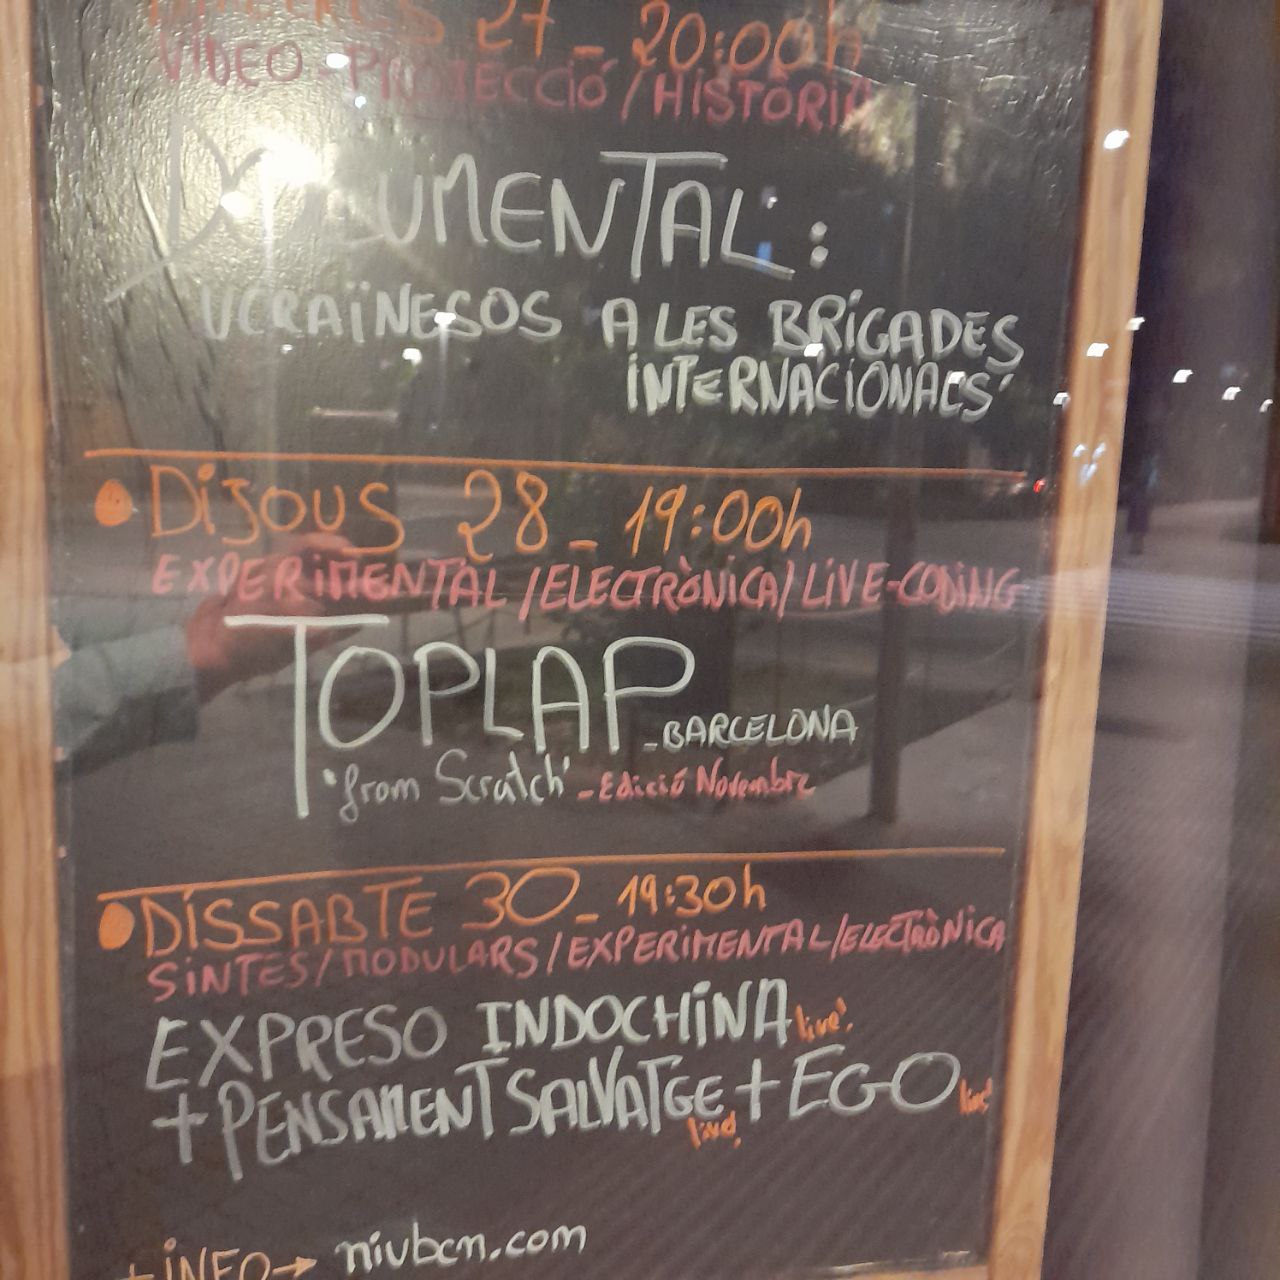 DIMECRES 27 - 20:00h
VÍDEO-PROJECCIÓ / HISTÒRIA
DOCUMENTAL:
UCRAÏNESOS A LES BRIGADES
INTERNACIONALS'
• DIJOUS 28 - 19:00h
EXPERIMENTAL / ELECTRÒNICA / LIVE-CODING
TOPLAP - BARCELONA
'from Scratch' - Edició Novembre
• DISSABTE 30 - 19:30h
SINTES / MODULARS / EXPERIMENTAL / ELECTRÒNICA
EXPRESO INDOCHINA live!
+ PENSAMENT SALVATGE live! + EGO live!
+ INFO → niubcn.com